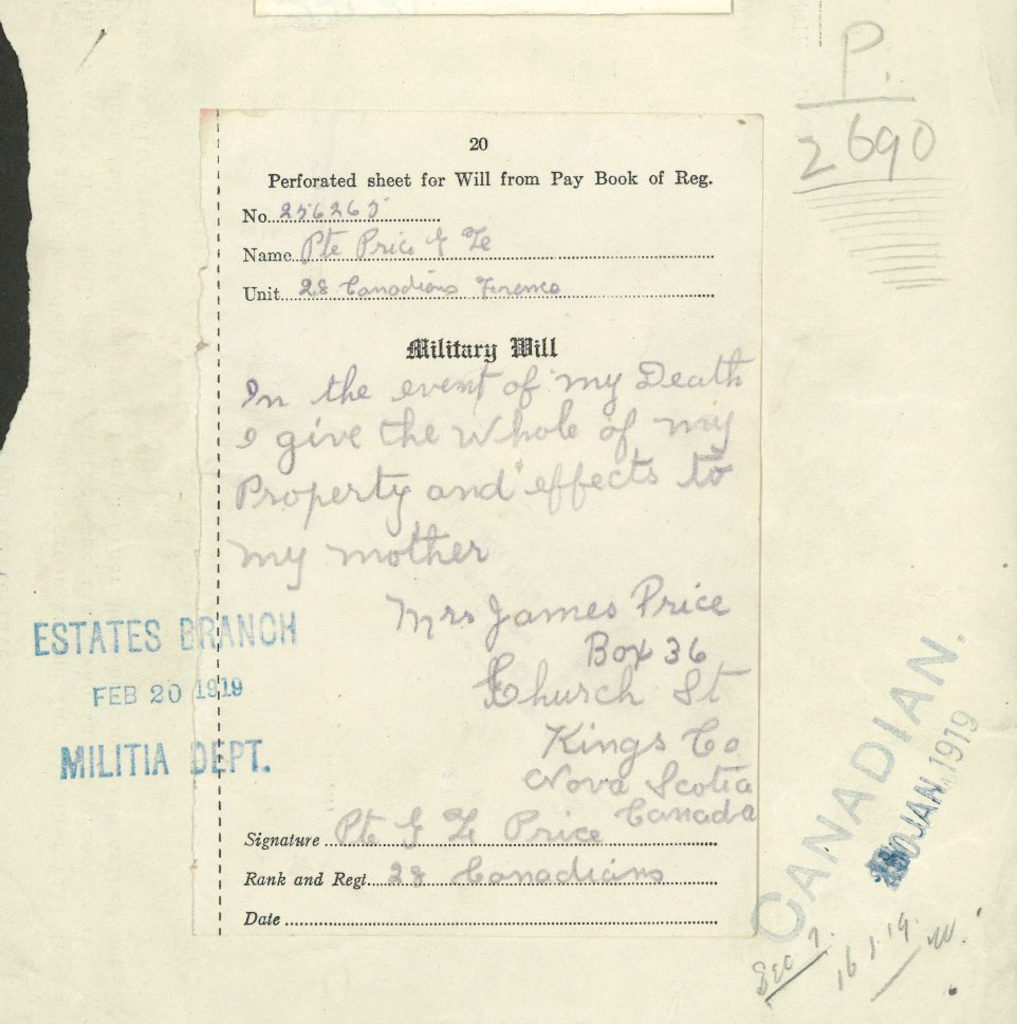 P.
2690
20
Perforated sheet for Will from Pay Book of Reg.
No. 256265
Name Pte Price
Unit 28 Canadians France
Military Will
In the event of my Death
I give the Whole of my
Property and effects to
my mother
Mrs James Price
Box 36
Church St
Kings Co
Nova Scotia
Canada
Signature Pte Price
Rank and Regt. 28 Canadians
Date
ESTATES BRANCH
FEB 20 1919
MILITIA DEPT.
CANADIAN.
JAN. 1919
16.1.19.